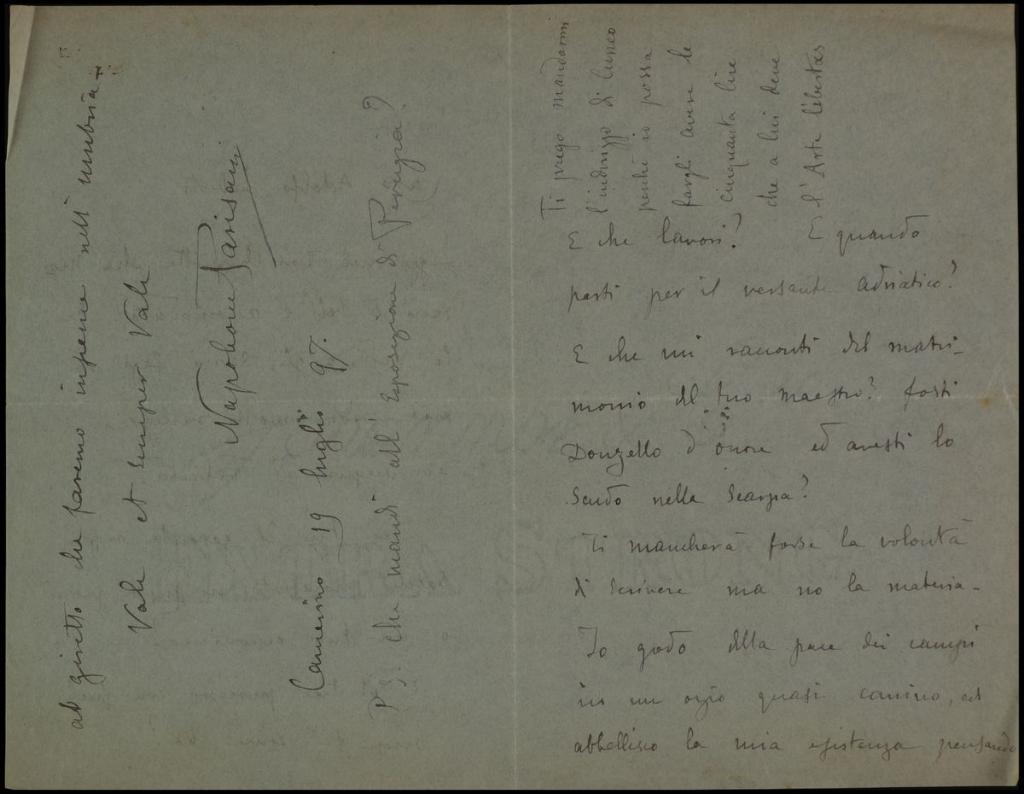 E che lavori? E quando
parti per il versante adriatico?
E che mi racconti del matri-
monio del tuo maestro? fosti
Donzello d'onore ed avesti lo
Scudo nella Scarpa?
Ti mancherà forse la volontà
di scrivere ma no la materia-
Io godo della pace dei campi
in un ozio quasi canino, ed
abbellisco la mia esistenza pensando
al giretto che faremo insieme nell'umbria-
Vale et semper Vale
Napoleone Parisani
Camerino 19 luglio 97.
P.S. che mandi all'Esposizione di Perugia?
Ti prego mandarmi
l'indirizzo di
perché io possa
fargli avere le
cinquanta lire
che a lui deve
l'Arte Libertas